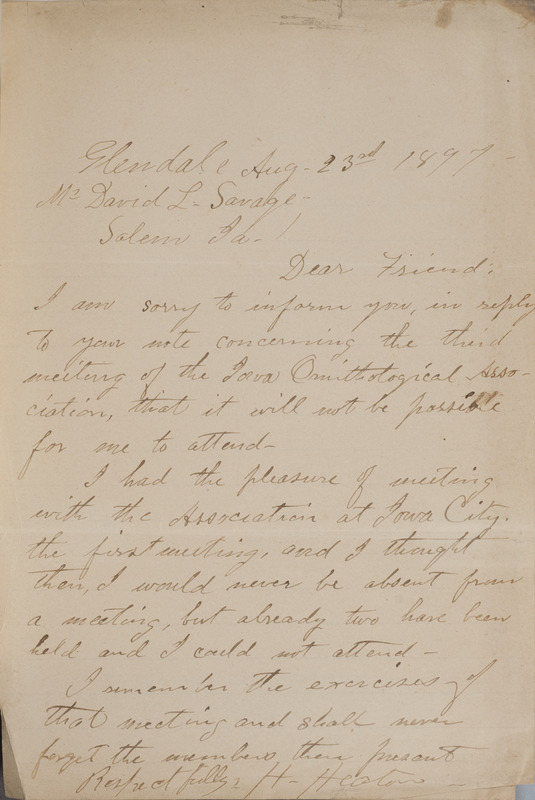 Glendale Aug - 23rd 1897 -
Mr David L - Savage -
Salem Ia - !
Dear Friend:
I am sorry to inform you, in reply
to your note concerning the third
meeting of the Iowa Ornithological Asso-
ciation, that it will not be possible
for me to attend -
I had the pleasure of meeting
with the Association at Iowa City.
the first meeting, and I thought
then, I would never be absent from
a meeting, but already two have been
held and I could not attend -
I remember the exercises of
that meeting and shall never
forget the members then present
Respectfully, H - Heaton -